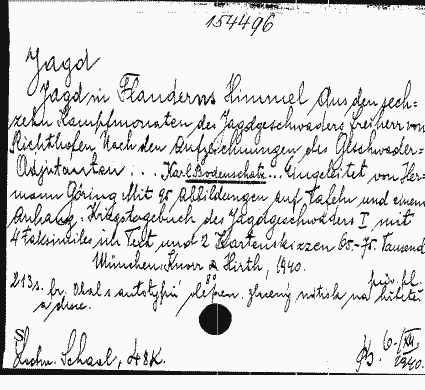 154496
Jagd
Jagd in Flanderns Himmel Aus den sech-
zehn Kampfmonaten des Jagdgeschwaders Freiherr von
Richthofen Nach den Aufzeichnungen des Geschwader-
Adjutanten ... Karl Bodenschatz ... Eingeleitet von Her-
mann Göring Mit 95 Abbildungen auf Tafeln und einem
Anhang: Kriegstagebuch des Jagdgeschwaders I mit
4 Faksimiles im Text und 2 Kartenskizzen 65-75. Tausend
München: Knorr & Hirth, 1940.
213 s. fr. 8°
a desce.
Schaal, 48K.
6./XII.
1940.